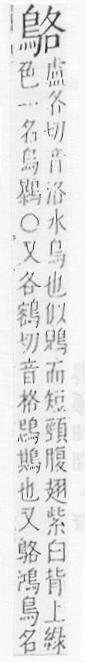 鵅
盧各切音洛水鳥也似鴞而短頸腹翅紫白背上綠
色一名烏鸔〇又各鶴切音格鵋䳢也又鵅鴻鳥名